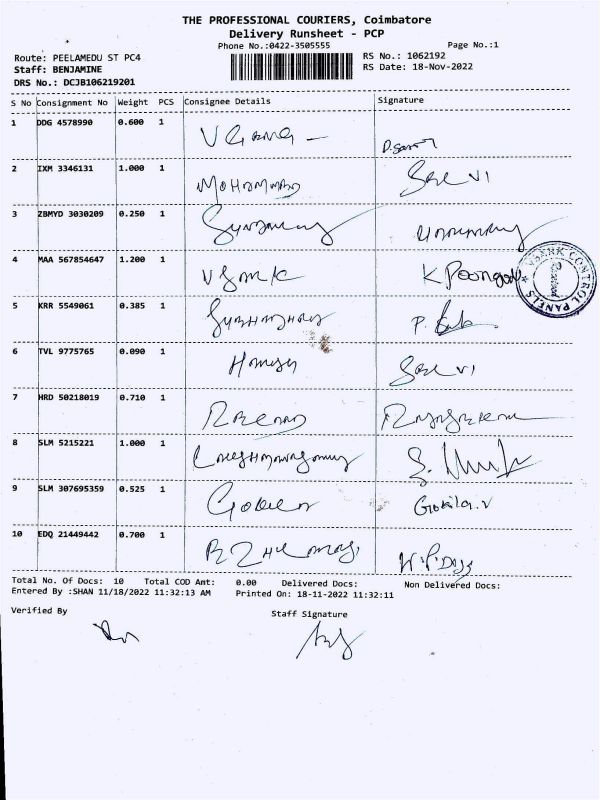 THE PROFESSIONAL COURIERS, Coimbatore
Delivery Runsheet - PCP
Phone No.:0422-3505555
Page No.:1
Route: PEELAMEDU ST PC4
RS No.: 1062192
Staff: BENJAMINE
RS Date: 18-Nov-2022
DRS No.: DCJB106219201
S No Consignment No Weight PCS Consignee Details Signature
1 DDG 4578990 0.600 1
2 IXM 3346131 1.000 1 Mohammed Selvi
3 ZBMYD 3030209 0.250 1
4 MAA 567854647 1.200 1 K Poongodi
VSANK CONTROL PANELS
5 KRR 5549061 0.385 1
6 TVL 9775765 0.090 1 Selvi
7 HRD 50218019 0.710 1
8 SLM 5215221 1.000 1
9 SLM 307695359 0.525 1 Gokila.v
10 EDQ 21449442 0.700 1
Total No. Of Docs: 10 Total COD Amt: 0.00 Delivered Docs: Non Delivered Docs:
Entered By :SHAN 11/18/2022 11:32:13 AM Printed On: 18-11-2022 11:32:11
Verified By
Staff Signature